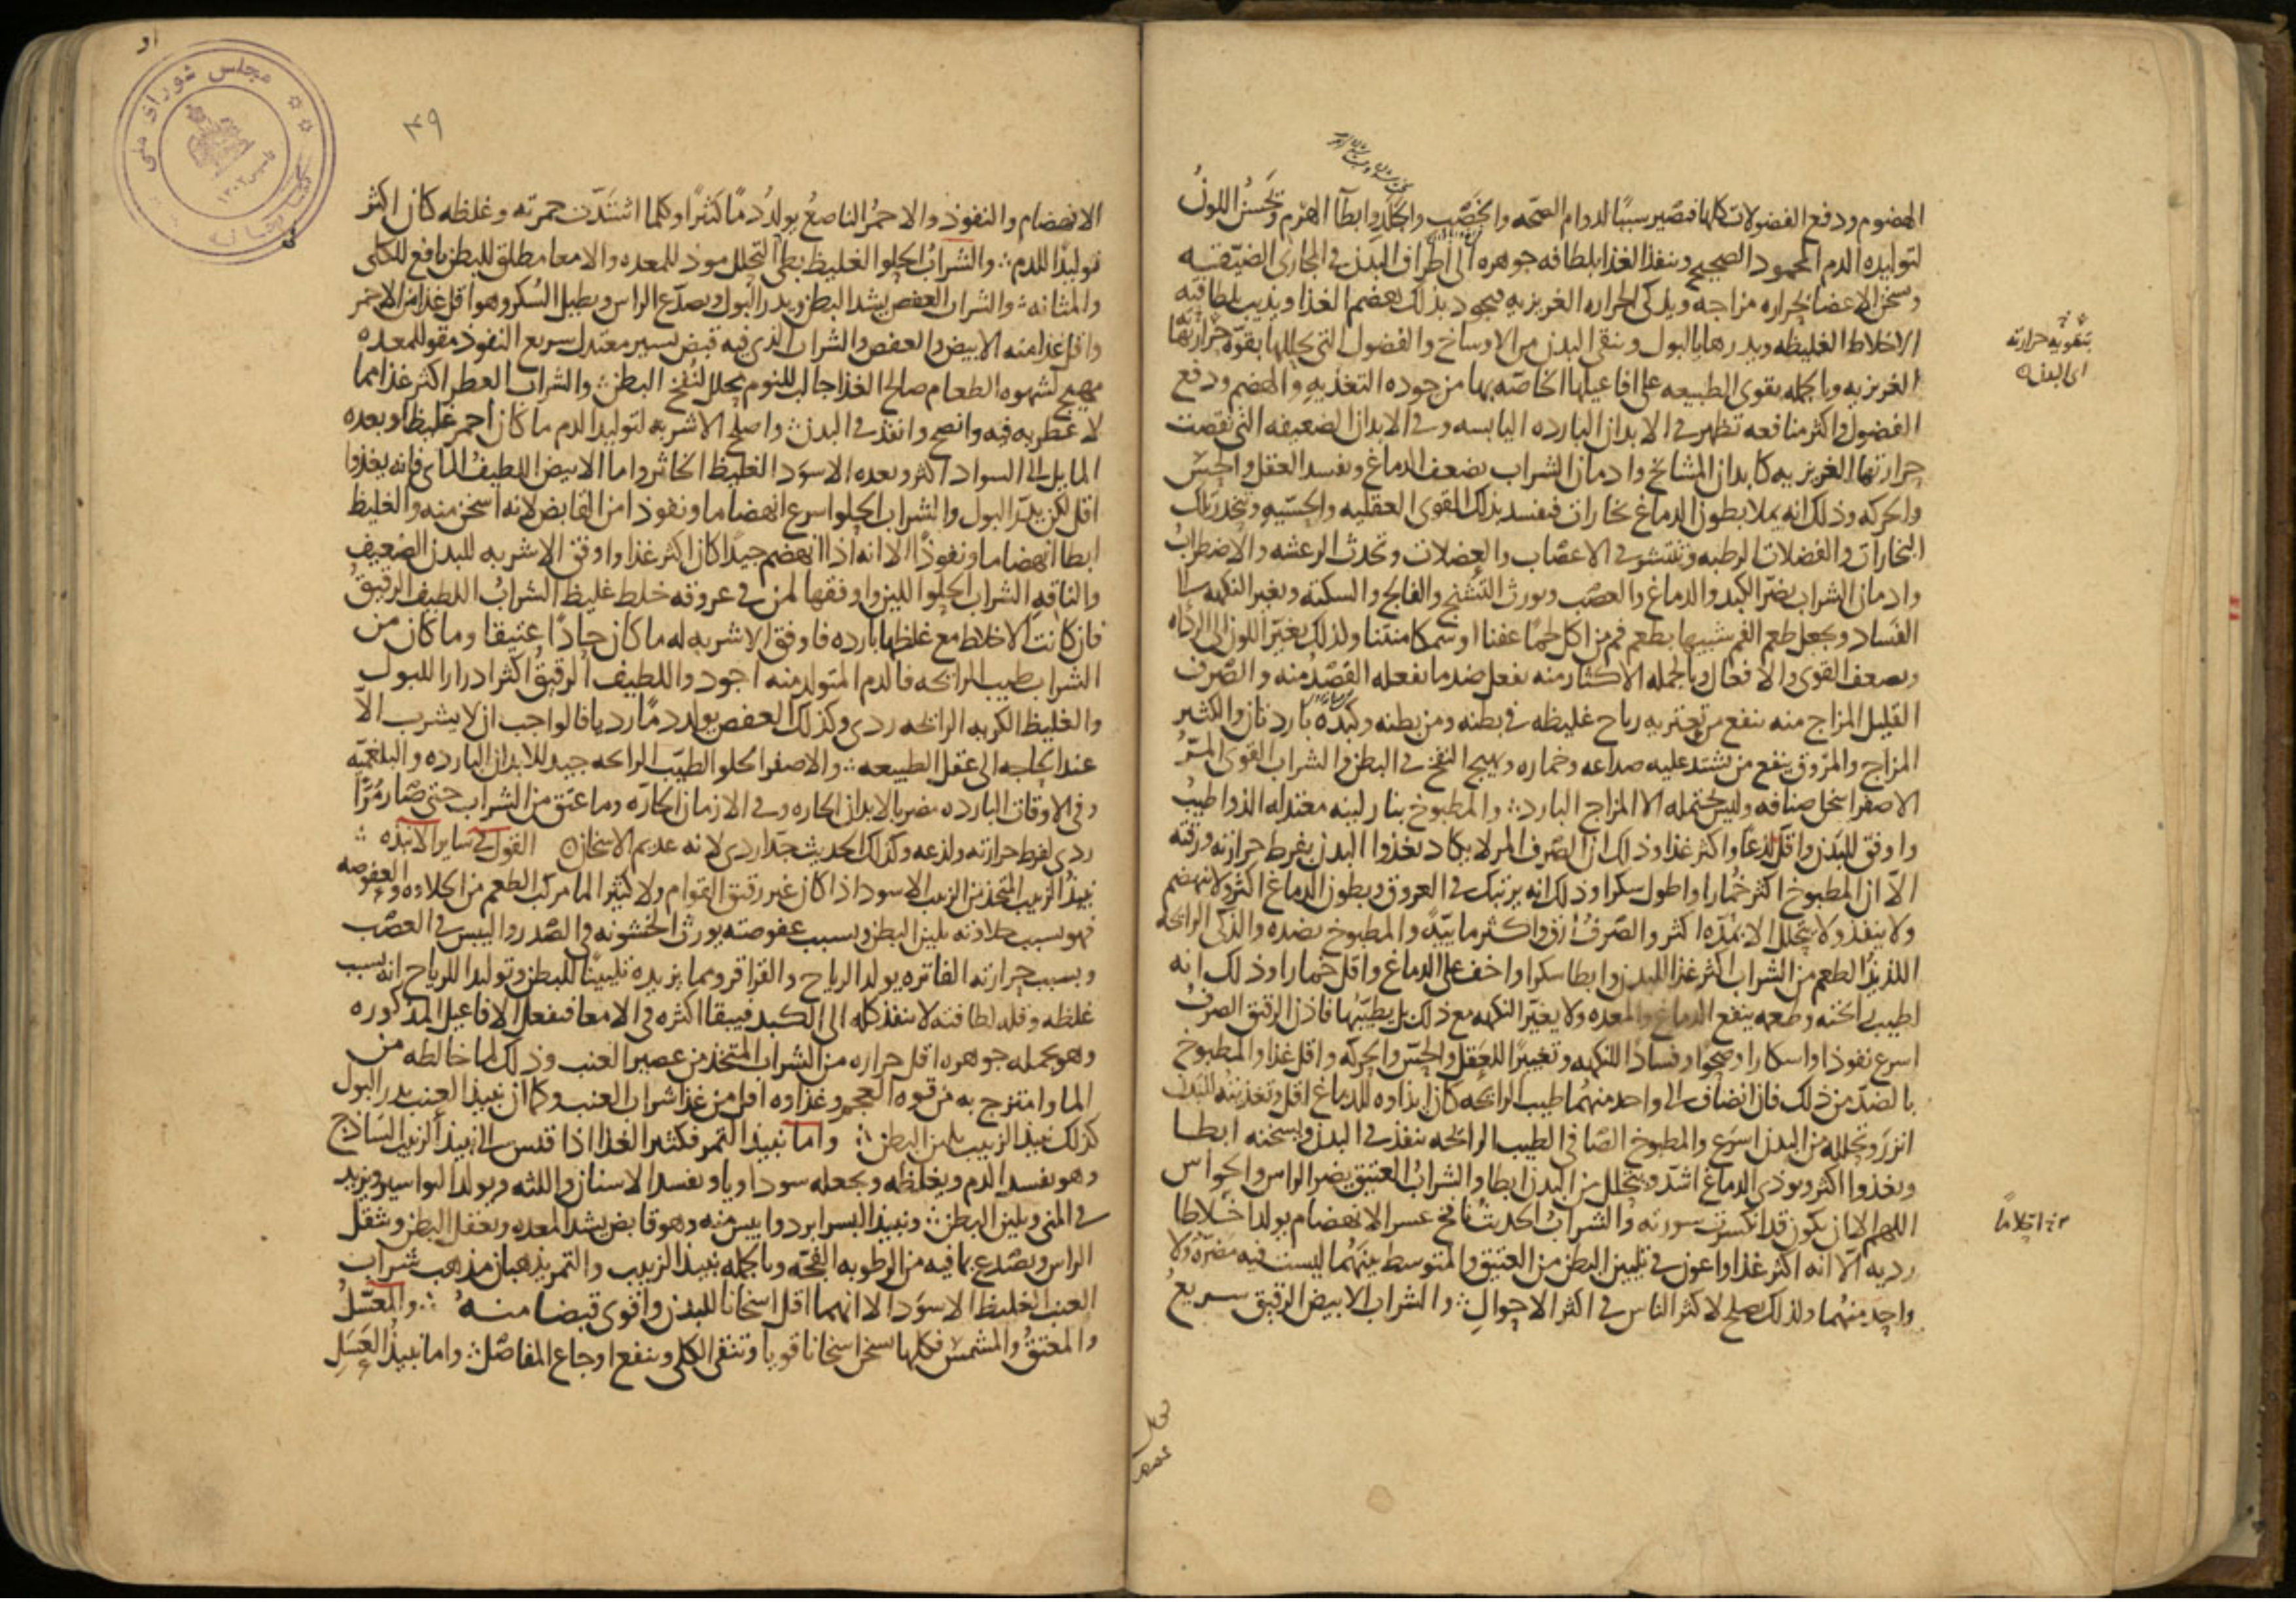 الهضوم ودفع الفضولات كلها فتصير سببًا لدوام الصحه والخصب والجلد وابطا الهرم وتحسن اللون
لتوليده الدم المحمود الصحيح وينفذ الغذا بلطافه جوهره الى اطراف البدن في المجاري الضيقه
وسخن الاعضا بحراره مزاجه ويذكى الحراره الغريزيه فيجود بذلك هضم الغذا ويذيب بلطافته
الاخلاط الغليظه ويدرها بالبول وينقى البدن من الاوساخ والفضول التي يحللها بقوة حرارتها
بتقويه حرارته
اى البدن
الغريزيه وبالجمله يقوى الطبيعه على افاعيلها الخاصه بها من جوده التغذيه والهضم ودفع
الفضول واكثر منافعه تظهر في الابدان البارده اليابسه وفي الابدان الضعيفه التي نقصت
حرارتها الغريزيه كابدان المشائخ وادمان الشراب يضعف الدماغ ويفسد العقل والحس
والحركه وذلك انه يملا بطون الدماغ بخارات فيفسد بذلك القوى العقليه والحسيه وينحدر تلك
البخارات والفضلات الرطبه وتتشو في الاعصاب والعضلات وتحدث الرعشه والاضطراب
وادمان الشراب يضر الكبد والدماغ والعصب ويورث التشنج والفالج والسكته ويغير النكهه الى
الفساد ويجعل طعم الفم شبيها بطعم فم من اكل لحمًا عفنا او سمكا منتنا ولذلك يغير اللون الى الرداه
ويضعف القوى والافعال وبالجمله الاكثار منه يفعل ضد ما يفعله القصد منه والصرف
القليل المزاج منه ينفع من تعتريه رياح غليظه في بطنه ومن بطنه وكبده باردتان والكثير
المزاج والمروق ينفع من يشتد عليه صداعه وخماره ويهيج النفخ في البطن والشراب القوى المر
الاصفر اسخن اصنافه وليس يحتمله الا المزاج البارد والمطبوخ بنار لينه معتدله الذ واطيب
واوفق للبدن واقل لذعًا واكثر غذا وذلك ان الصرف المر لا يكاد يغذوا البدن بفرط حرارته ورقته
الا ان المطبوخ اكثر خمارا واطول سكرا وذلك انه يرتبك في العروق وبطون الدماغ اكثر ولا ينهضم
ولا ينفذ ولا يتحلل الا بمده اكثر والصرف ارق واكثر مائيه والمطبوخ بضده والذكى الرائحه
اللذيذ الطعم من الشراب اكثر غذا للبدن وابطا سكرا واخف على الدماغ واقل خمارا وذلك انه
لطيب رائحته وطعمه ينفع الدماغ والمعده ولا يغير النكهه مع ذلك بل يطيبها فاذن الرقيق الصرف
اسرع نفوذا واسكارا وصحوا وفسادا للنكهه وتغييرًا للعقل والحس والحركه واقل غذا والمطبوخ
بالضد من ذلك فان انضاف الى واحد منهما طيب الرائحه كان ايذاوه للدماغ اقل وتغذيته للبدن
انزر وتحلله من البدن اسرع والمطبوخ الصافى الطيب الرائحه ينفذ في البدن ويسخنه ابطا
ويغذوا اكثر ويوذى الدماغ اشد ويتحلل من البدن ابطا والشراب العتيق يضر الراس والحواس
اللهم الا ان يكون قد انكسرت سورته والشراب الحديث نافخ عسر الانهضام يولد اخلاطا
رديه الا انه اكثر غذا واعون في تليين البطن من العتيق والمتوسط بينهما ليست فيه مضره ولا
واحد منهما ولذلك يصلح لاكثر الناس في اكثر الاحوال والشراب الابيض الرقيق سريع
٤٩
الانهضام والنفوذ والاحمر الناصع يولد دمًا كثيرًا وكلما اشتدت حمرته وغلظه كان اكثر
توليدًا للدم والشراب الحلو الغليظ بطى التحلل موذ للمعده والامعا مطلق للبطن نافع للكلى
والمثانه والشراب العفص يشد البطن ويدر البول ويصدع الراس ويطيل السكر وهو اقل غذا من الاحمر
واقل غذا منه الابيض والعفص والشراب الذى فيه قبض يسير معتدل سريع النفوذ مقو للمعده
مهيج لشهوه الطعام صالح الغذا جالب للنوم محلل لنفخ البطن والشراب العطر اكثر غذا مما
لا عطريه فيه وانضج وانفذ في البدن واصلح الاشربه لتوليد الدم ما كان احمر غليظا وبعده
المايل الى السواد اكثر وبعده الاسود الغليظ الخاثر واما الابيض اللطيف المائ فانه يغذوا
اقل لكن يدر البول والشراب الحلو اسرع انهضاما ونفوذا من القابض لانه اسخن منه والغليظ
ابطا انهضاما ونفوذًا الا انه اذا انهضم جيدًا كان اكثر غذا واوفق الاشربه للبدن الضعيف
والناقه الشراب الحلو اللين واوفقها لمن في عروقه خلط غليظ الشراب اللطيف الرقيق
فان كانت الاخلاط مع غلظها بارده فاوفق الاشربه له ما كان حادًا عتيقا وما كان من
الشراب طيب الرائحه فالدم المتولد منه اجود واللطيف الرقيق اكثر ادرارا للبول
والغليظ الكريه الرائحه ردى وكذلك العفص يولد دمًا رديا فالواجب ان لا يشرب الا
عند الحاجه الى عقل الطبيعه والاصفر الحلو الطيب الرائحه جيد للابدان البارده والبلغميه
وفى الاوقات البارده مضر بالابدان الحاره وفي الازمان الحاره وما عتق من الشراب حتى صار مرًا
ردى لفرط حرارته ولذعه وكذلك الحديث جدا ردى لانه عديم الاسخان القول في ساير الانبذه
نبيذ الزبيب المتخذ من الزبيب الاسود اذا كان غير رقيق القوام ولا كثير الما مركب الطعم من الحلاوه والعفوصه
فهو بسبب حلاوته يلين البطن وبسبب عفوصته يورث الخشونه في الصدر واليبس في العصب
وبسبب حرارته الفاتره يولد الرياح والقراقر ومما يزيده تليينًا للبطن وتوليدا للرياح انه بسبب
غلظه وقله لطافته لا ينفذ كله الى الكبد فيبقا اكثره في الامعا فيفعل الافاعيل المذكوره
وهو بجمله جوهره اقل حراره من الشراب المتخذ من عصير العنب وذلك لما خالطه من
الما وامتزج به من قوه العجم وغذاوه اقل من غذا شراب العنب وكما ان نبيذ العنب يدر البول
كذلك نبيذ الزبيب يلين البطن واما نبيذ التمر فكثير الغذا اذا قيس الى نبيذ الزبيب الساذج
وهو يفسد الدم ويغلظه ويجعله سوداويا ويفسد الاسنان واللثه ويولد البواسير ويزيد
في المنى ويلين البطن ونبيذ البسر ابرد وايبس منه وهو قابض يشد المعده ويعقل البطن ويثقل
الراس ويصدع بما فيه من الرطوبه الفجه وبالجمله نبيذ الزبيب والتمر يذهبان مذهب شراب
العنب الغليظ الاسود الا انهما اقل اسخانا للبدن واقوى قبضا منه والمعسل
والمعتق والمشمس فكلها يسخن اسخانا قويا وتنقى الكلى وينفع اوجاع المفاصل واما نبيذ العسل
مجلس شوراى ملى